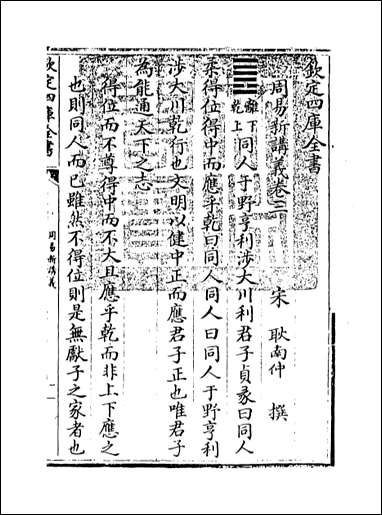 欽定四庫全書
周易新講義卷二
宋 耿南仲 撰
離下
乾上
同人于野亨利涉大川利君子貞彖曰同人
柔得位得中而應乎乾曰同人同人曰同人于野亨利
涉大川乾行也文明以健中正而應君子正也唯君子
為能通天下之志
得位而不尊得中而不大且應乎乾而非上下應之
也則同人而已雖然不得位則是無獻子之家者也
欽定四庫全書
周易新講義